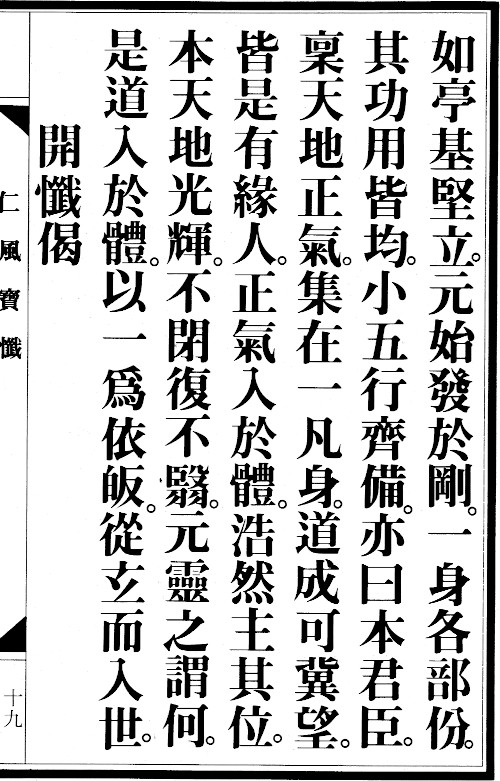 如亭基堅立。元始發於剛。一身各部份。
其功用皆均。小五行齊備。亦曰本君臣。
稟天地正氣。集在一凡身。道成可冀望。
皆是有緣人。正氣入於體。浩然主其位。
本天地光輝。不閉復不翳。元靈之謂何。
是道入於體。以一爲依皈。從玄而入世。
開懺偈
仁風寶懺
十九